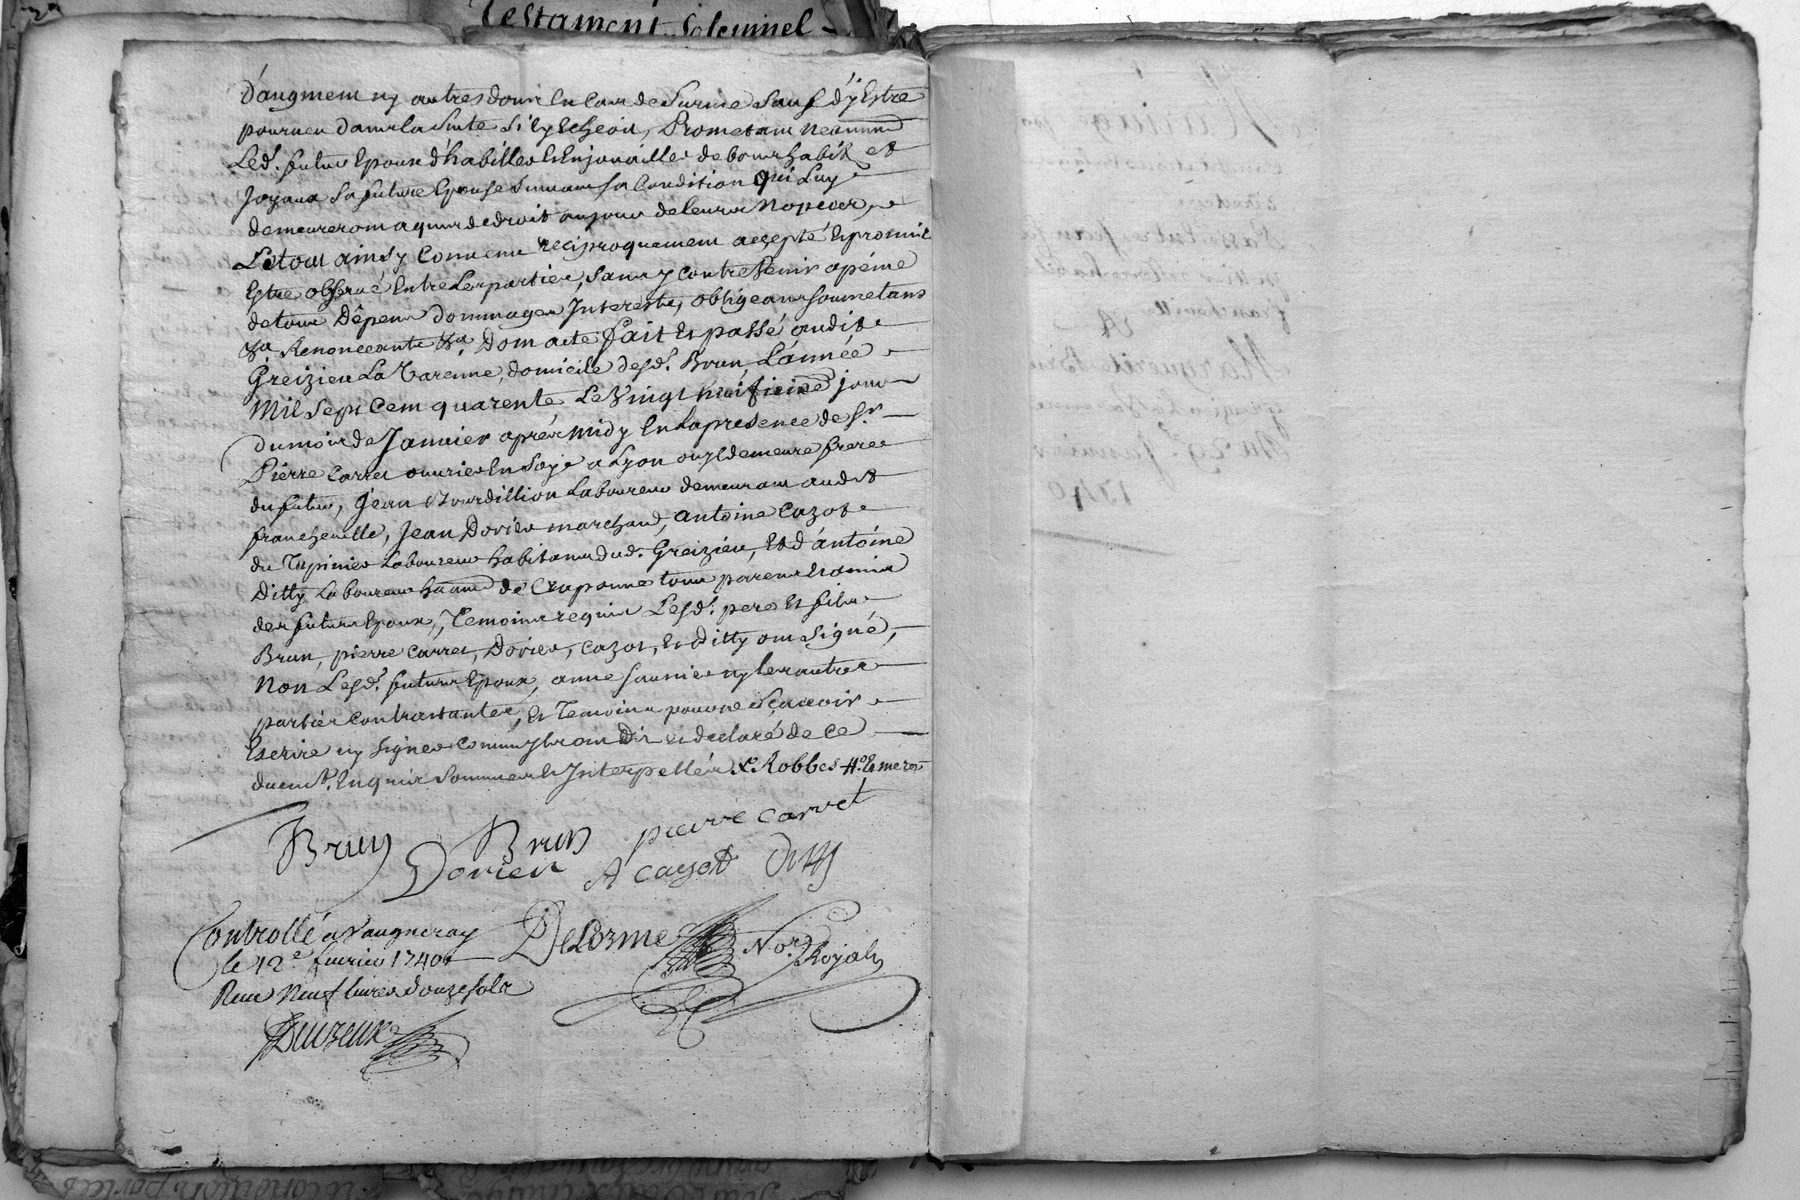 Testament Solennel
D'augment ny autres donn En Cas de Survie Sauf d'y Estre
pourveu dans la Suite Si ly Echeoit, Prometant neanmd
Led. futur Epoux d'habiller & Enjouailler de bons habits et
Joyaux Sa future Epouse Suivant sa Condition qui Luy
demeureront aquis de droit au jour de leurs Nopces,
Letout ainsy Convenu reciproquement accepté Et promis
Estre observé Entre Les parties, Sans y contrevenir apéine
de tous Dépens dommages Interests, obligeans soumetans
&a Renonceants &a. Dont acte fait Et passé audit
Greizieu La Varenne, domicile desd. Brun, L'année
Mil Sept Cent quarente Le Vingt huitieme jour
du mois de Janvier aprés midy En la presence de Sr
Pierre Carret ouvrier En Soye a Lyon ou Il demeure frere
du futur, Jean Bourdillion Laboureur demeurant audit
francheville, Jean Dorier marchand, Antoine Cazot
du Tupinier Laboureur habitans dud. Greizieu, Et d'antoine
Ditty Laboureur haant de Craponne tous parens Et amis
des futurs Epoux, Temoins requis Lesd. pere Et fils
Brun, pierre Carret, Dorier, Cazot, Et Ditty ont Signé,
Non Lesd. futurs Epoux, anne saunier ny les autres
parties Contractantes, Et Temoins pour ne Sçavoir
Escrire ny Signer Comme Ils ont Dit Et declaré de Ce
duemt. Enquis Sommes & Interpellés
Brun Brun pierre carret
Dorier A cazot Ditty
Controllé a Vaugneray
le 12e fevrier 1740
Reçu Neuf livres douze sols
DeLorme Nore. Royal
Mariage
Marguerite Brun
Du 28e Janvier
1740